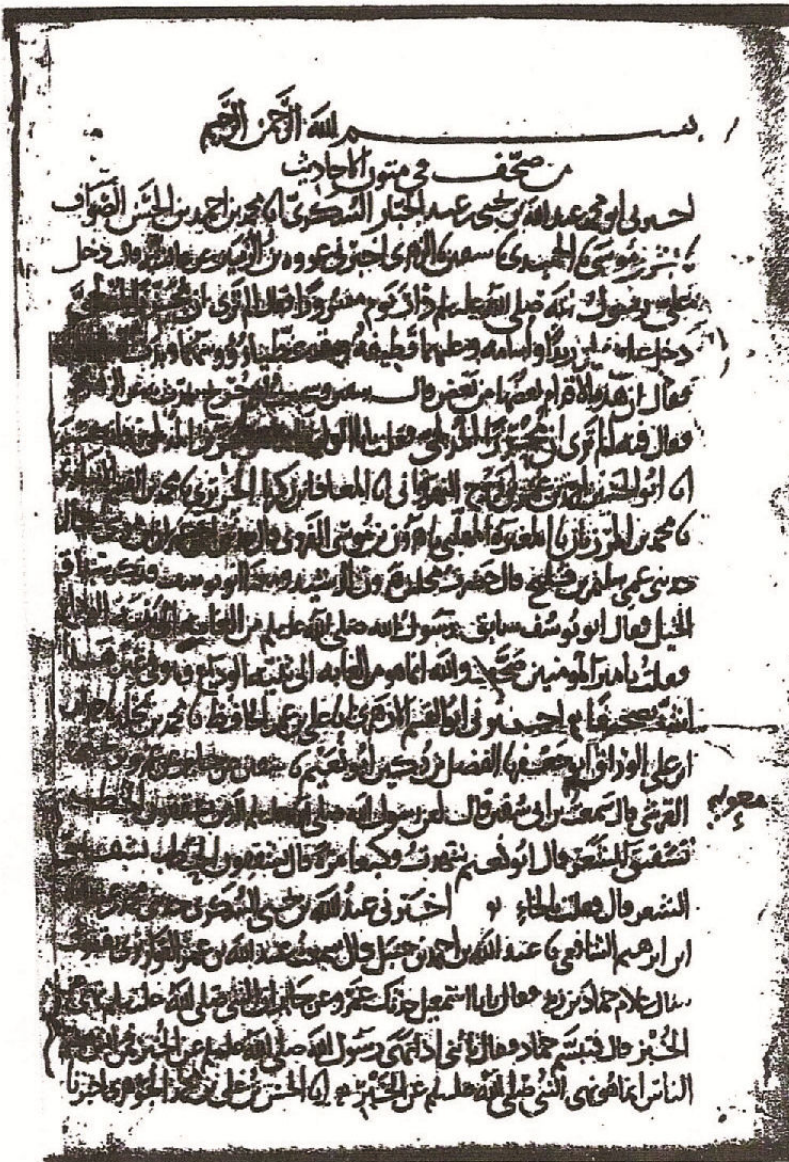 بسم الله الرحمن الرحيم
من صحف في متون الاحاديث
اخبرني ابو محمد عبد الله بن يحيى بن عبد الجبار السكري انا محمد بن احمد بن الحسن الصواف
بشر بن موسى نا الحميدي نا سفين نا الزهري اخبرني عروة بن الزبير عن عائشة قالت دخل
علي رسول الله صلى الله عليه وسلم ذات يوم مسرورا فقال الم تري ان مجززا المدلجي
دخل علي فراى زيدا واسامة وعليهما قطيفة قد غطيا رؤوسهما وبدت
فقال ان هذه الاقدام بعضها من بعض قال سفين وسمعت ابن جريج يحدث به عن الزهري
فقال فيه الم تري ان
انا ابو الحسين احمد بن عمر بن روح النهرواني انا المعافا بن زكريا الجريري نا محمد بن
نا محمد بن المرزبان نا المغيرة المهلبي نا هرون بن موسى الفروي قال
حدثني عمي سليمن بن فليح قال حضرت مجلس هرون الرشيد ومعه ابو يوسف فذكر سباق
الخيل فقال ابو يوسف سابق رسول الله صلى الله عليه وسلم من الغاية
فقلت يا امير المومنين صحف والله انما هو من الغابة الى ثنية الوداع وهو في غير هذا
اشد تصحيفا اخبرني ابو القسم الازهري انا علي بن عمر الحافظ نا محمد بن مخلد نا
ابن علي الوراق ابو جعفر نا الفضل بن دكين ابو نعيم نا سفين عن جابر عن عمرو بن
القرشي قال سمعت بن ابي سفين قال لعن رسول الله صلى الله عليه وسلم الذين يشققون الخطب
معوية
تشقيق الشعر قال ابو نعيم شهدت وكيعا مرة قال يشققون الحطب تشقيق
الشعر قال فقلت بالخاء اخبرني عبد الله بن يحيى السكري
ابن ابرهيم الشافعي نا عبد الله بن احمد بن حنبل قال سمعت عبد الله بن عمر القواريري
سال غلام حماد بن زيد فقال يا با اسمعيل حدثك عمرو عن جابر ان النبي صلى الله عليه وسلم نهى عن
الخبز قال فتبسم حماد وقال يا بني اذا نهى رسول الله صلى الله عليه وسلم عن الخبز فمن اين
الناس انما هو نهى النبي صلى الله عليه وسلم عن الخبر انا الحسن بن علي بن محمد الجوهري اخبرنا